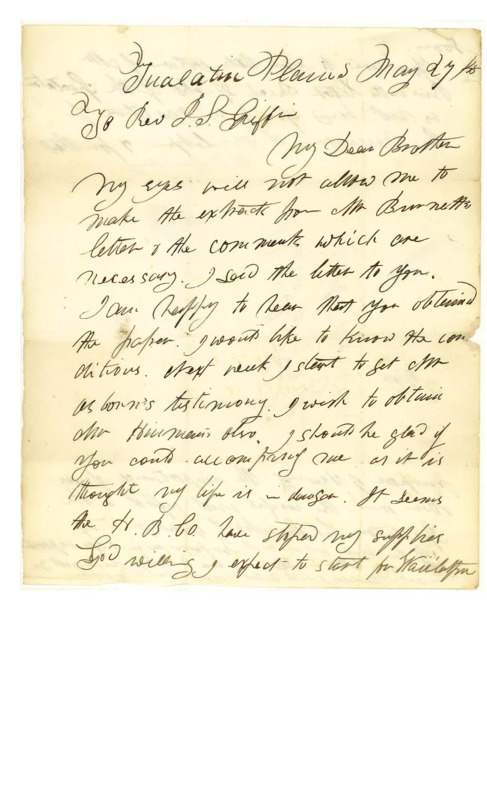 Tualatin Plains May 27/48
To Rev J. S. Griffin
My Dear Brother
My eyes will not allow me to
make the extracts from Mr Burnetts
letter & the comments which are
necessary. I send the letter to you.
I am happy to hear that you obtained
the paper. I would like to know the con
ditions. Next week I start to get Mr
Osborn's testimony. I wish to obtain
Mr Hinman's also. I should be glad if
you could accompany me as it is
thought my life is in danger. It seems
the H. B. Co. have stoped my supplies
God willing I expect to start for